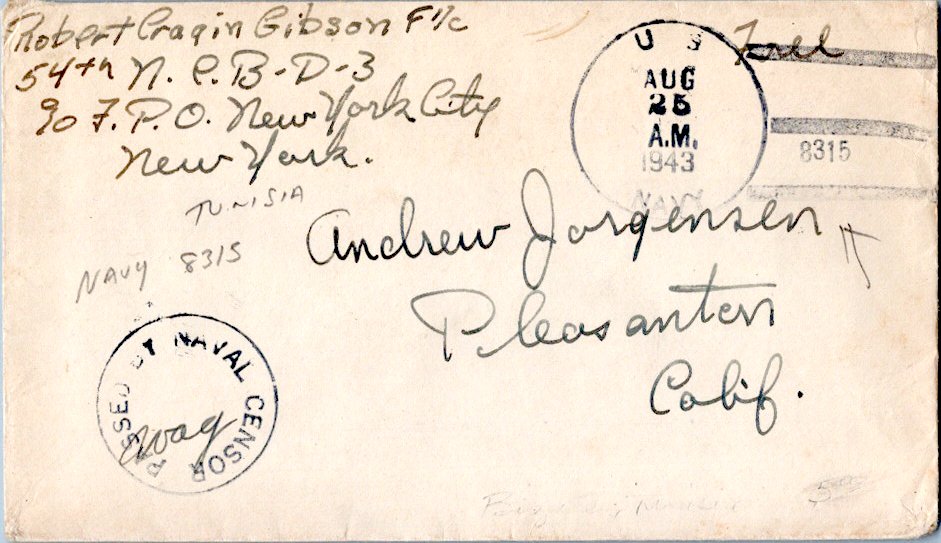 Robert Cragin Gibson F 1/c
54th N.C.B-D-3
c/o F.P.O. New York City
New York.
Free
U S
AUG
25
A.M.
1943
NAVY
8315
TUNISIA
NAVY 8315
Andrew Jorgensen
Pleasanton
Calif.
PASSED BY NAVAL CENSOR